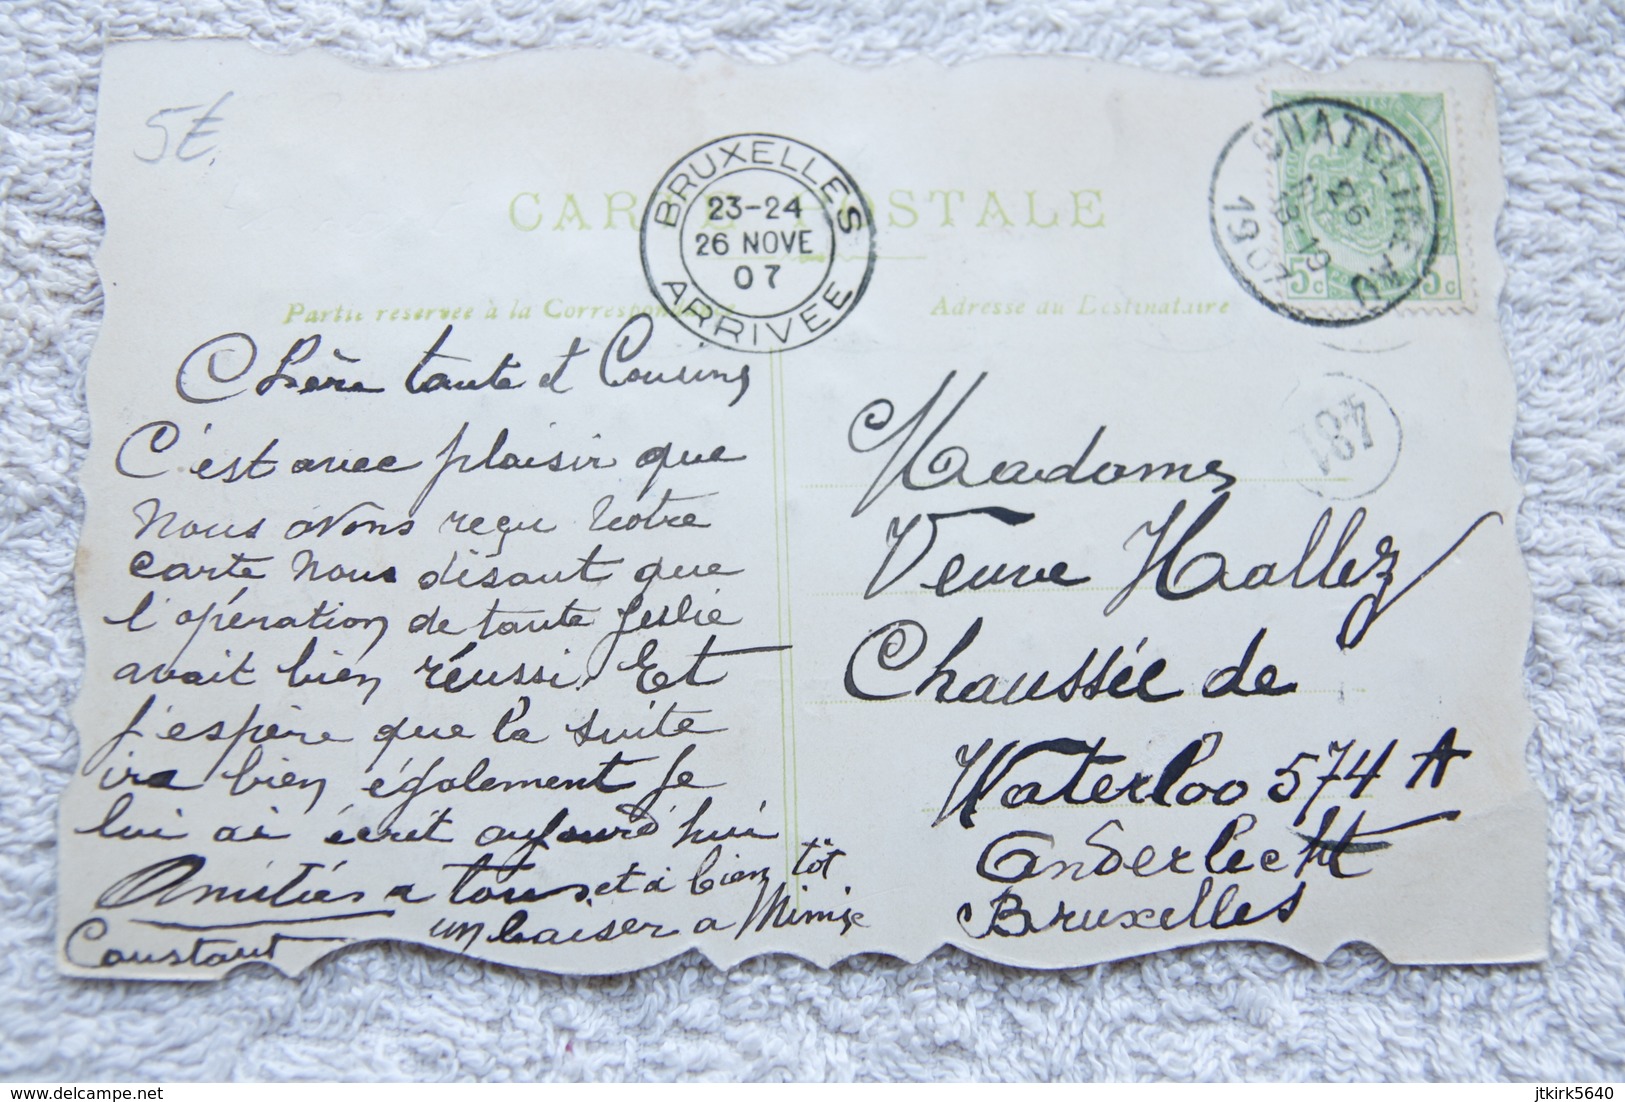 5€.
CARTE POSTALE
BRUXELLES
23-24
26 NOVE
07
ARRIVEE
CHATELINEAU
26
18-19
1907
5c 5c
Partie reservée à la Correspondance
Adresse du Destinataire
481
Chère tante et Cousins
C'est avec plaisir que
nous avons reçu votre
carte nous disant que
l'opération de tante
avait bien réussi. Et
j'espère que la suite
ira bien également je
lui ai écrit aujourd'hui
Amitiés a tous et à bien tôt
un baiser a Mimi
Constant
Madame
Veuve Hallez
Chaussée de
Waterloo 574 A
Anderlecht
Bruxelles
delcampe.net
jtkirk5640